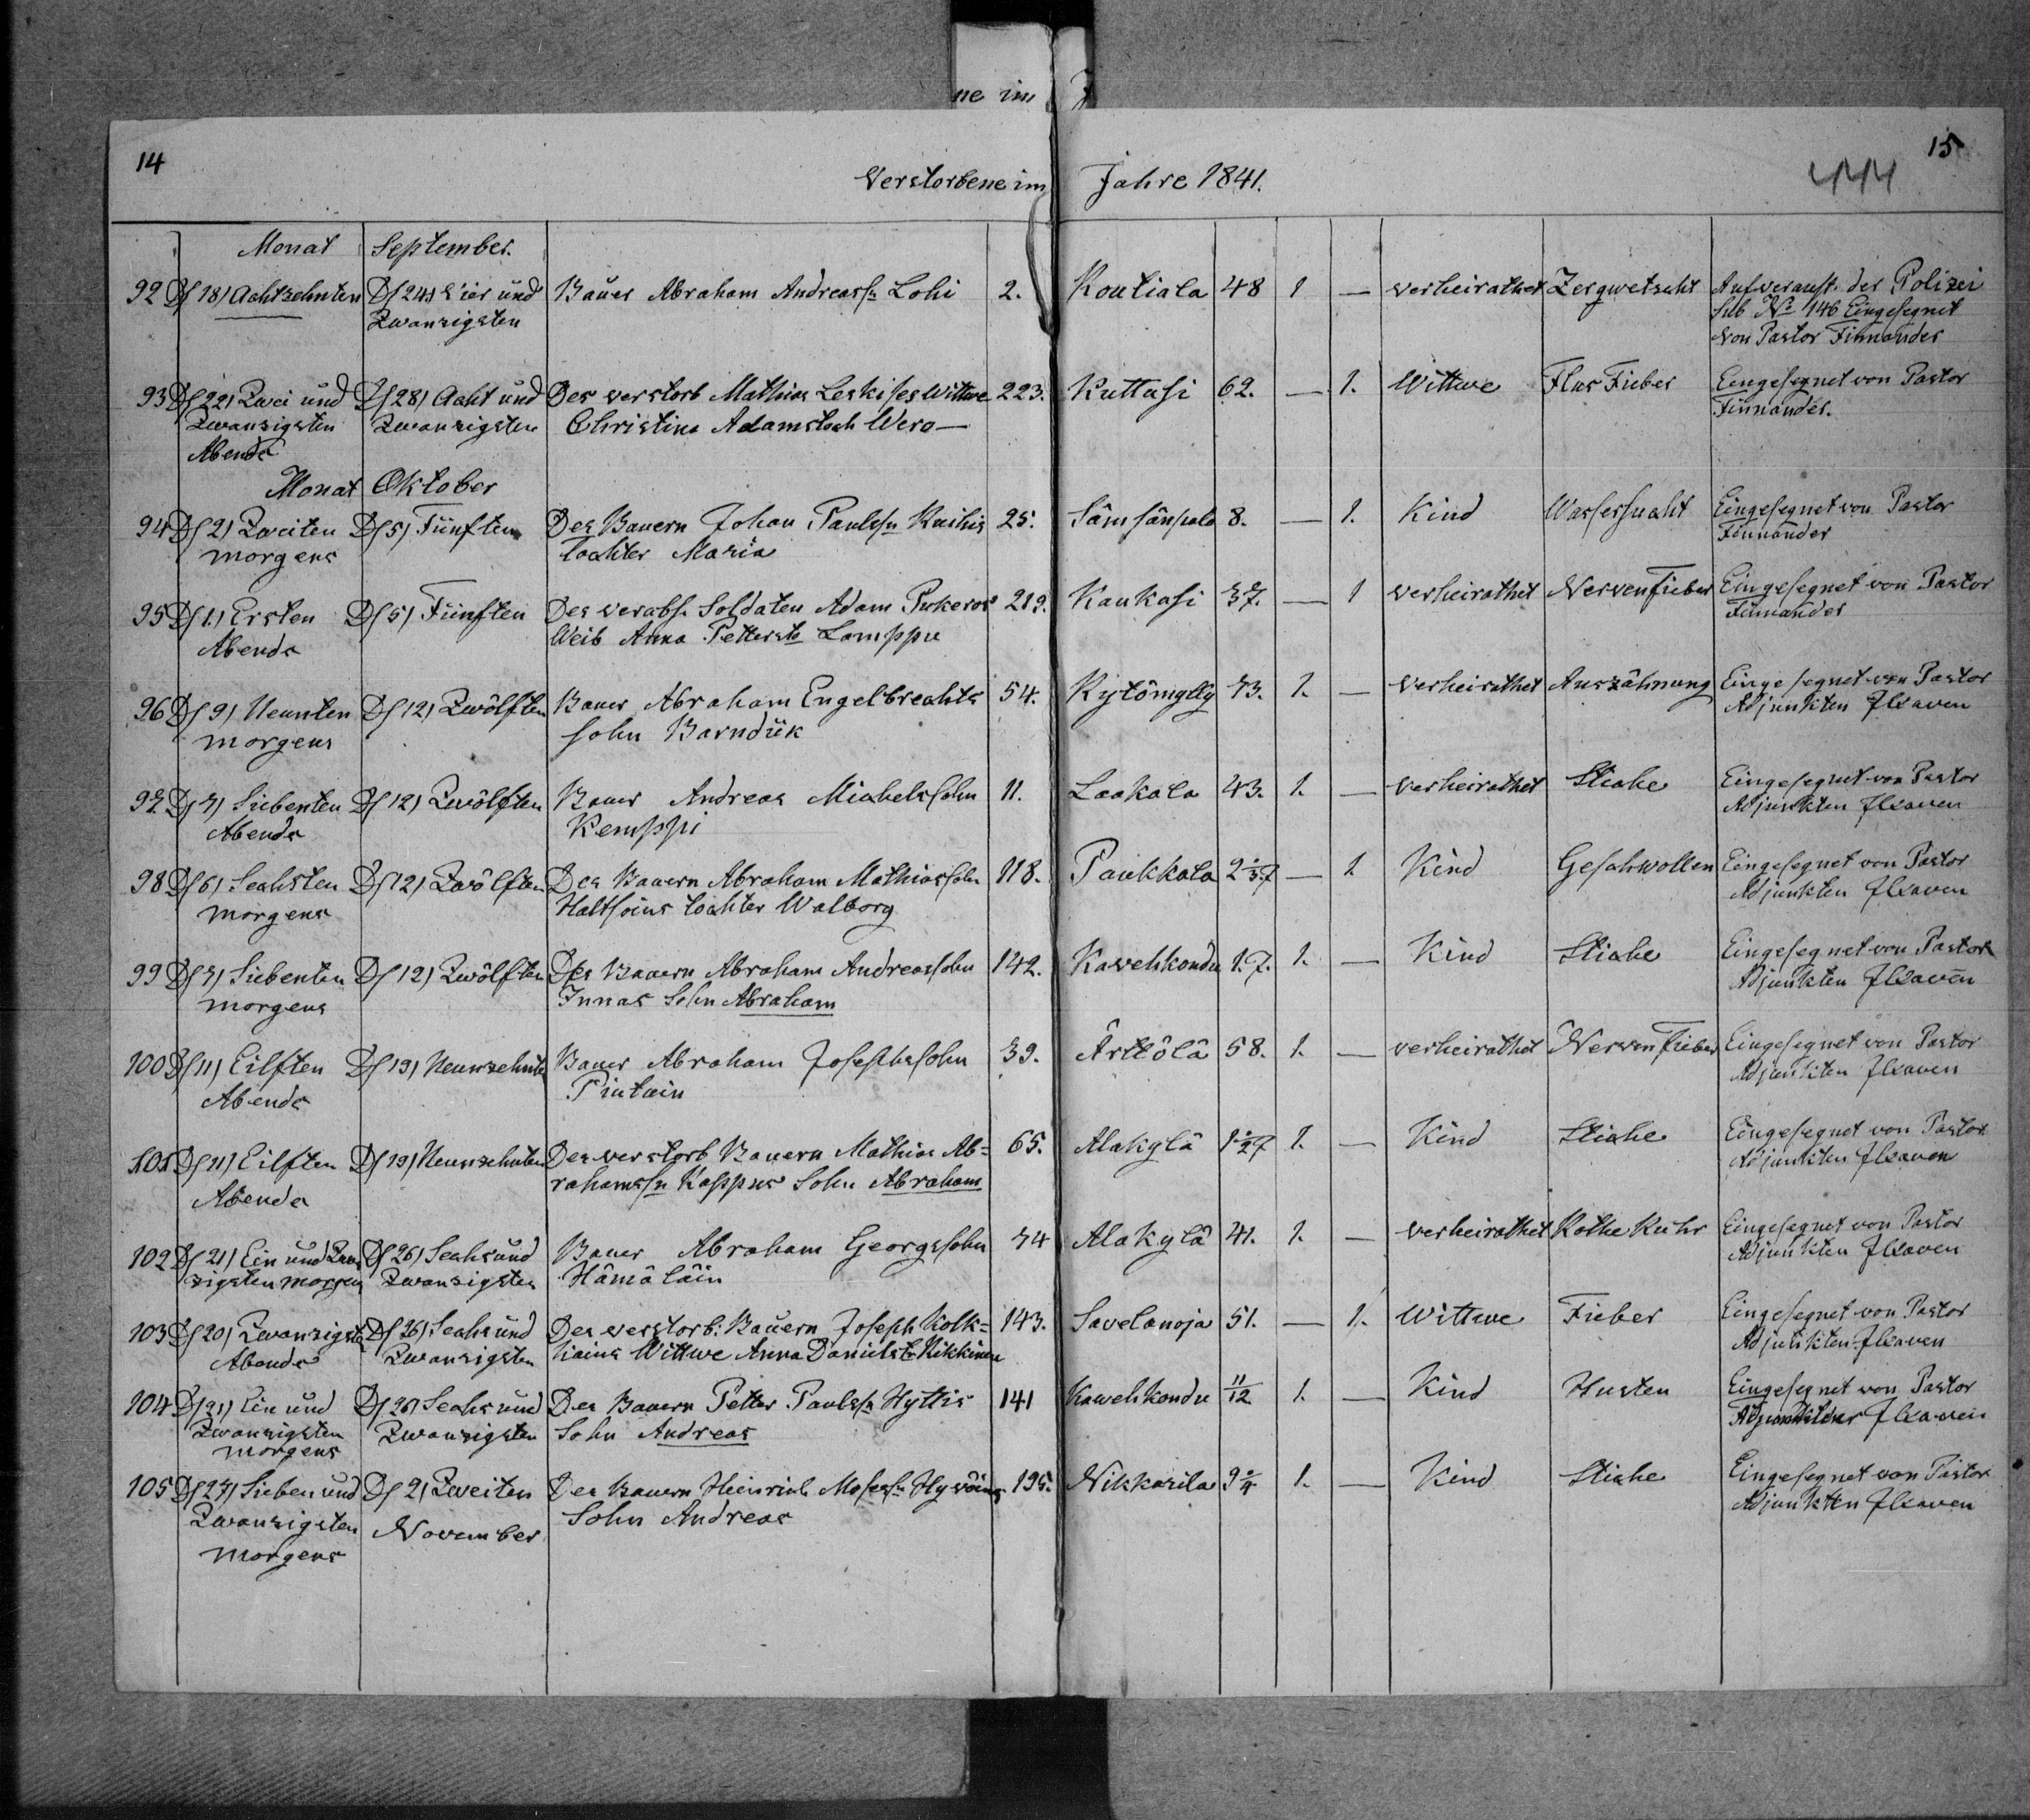 ne im J
14
15
Verstorbene im Jahre 1841.
Monat September.
92 D/18/ Achtzehnten D/24/ Vier und Bauer Abraham Andreass: Lohi 2. Koutiala 48 1 — verheirathet Zergwetscht Auf veranst. der Polizei
Zwanzigsten sub No 446 Eingesegnet
von Pastor Finnander
93 D/22/ Zwei und D/28/ Acht und Des verstorb Mathias Leskises Wittwe 223. Kuttasi 62. — 1. Wittwe Flus Fieber Eingesegnet von Pastor
Zwanzigsten Zwanzigsten Christina Adamstoch Wero — Finnander.
Abends
Monat Oktober
94 D/2/ Zweiten D/5/ Fünften Des Bauern Johan Paulss: Kuikis 25. Sämsänpelo 8. — 1. Kind Wassersucht Eingesegnet von Pastor
morgens tochter Maria Finnander
95 D/1./ Ersten D/5/ Fünften Des verabs. Soldaten Adam Pukeros 219. Kaukasi 37. — 1 verheirathet Nervenfieber Eingesegnet von Pastor
Abends Weib Anna Petterst: Lamppu Finnander
96 D/9/ Neunten D/12/ Zwölften Bauer Abraham Engelbrechts 54. Kytömylly 73. 1. — verheirathet Auszähnung Eingesegnet von Pastor
morgens sohn Barndük Adjunkten
97 D/7/ Siebenten D/12/ Zwölften Bauer Andreas Michelssohn 11. Laakala 43. 1. — verheirathet Stiche Eingesegnet von Pastor
Abends Kemppi Adjunkten
98 D/6/ Sechsten D/12/ Zwölften Des Bauern Abraham Mathiassohn 118. Paukkala — 1 Kind Geschwollen Eingesegnet von Pastor
morgens Haltsoins tochter Walborg Adjunkten
99 D/7/ Siebenten D/12/ Zwölften Des Bauern Abraham Andreassohn 142. Kawehkondu 1.J. 1. — Kind Stiche Eingesegnet von Pastor
morgens Innas Sohn Abraham Adjunkten
100 D/11/ Eilften D/19/ Neunzehnten Bauer Abraham Josephssohn 39. Ärttölä 58. 1. — verheirathet Nerven Fieber Eingesegnet von Pastor
Abends Piutain Adjunkten
101 D/11/ Eilften D/19/ Neunzehnten Des verstorb Bauern Mathias Ab= 65. Alakylä 1. — Kind Stiche Eingesegnet von Pastor
Abends rahamss: Kappus Sohn Abraham Adjunkten
102 D/21/ Ein und Zwan D/26/ Sechs und Bauer Abraham Georgssohn 74 Alakylä 41. 1. — verheirathet Rothe Ruhr Eingesegnet von Pastor
zigsten morgen Zwanzigsten Hämäläin Adjunkten
103 D/20/ Zwanzigsten D/26/ Sechs und Des verstorb: Bauern Joseph Kolk= 143. Savelanoja 51. — 1. Wittwe Fieber Eingesegnet von Pastor
Abends Zwanzigsten Wittwe Anna Danielst: Nikkinen Adjunkten
104 D/21/ Ein und D/26/ Sechs und Des Bauern Petter Paulss: Hyttis 141 Kawehkondu 11/12 1. — Kind Husten Eingesegnet von Pastor
Zwanzigsten Zwanzigsten Sohn Andreas Adjunkten
morgens
105 D/27/ Sieben und D/2/ Zweiten Des Bauern Heinrich Mosess: 195. Nikkarila 1. — Kind Stiche Eingesegnet von Pastor
Zwanzigsten November Sohn Andreas Adjunkten
morgens